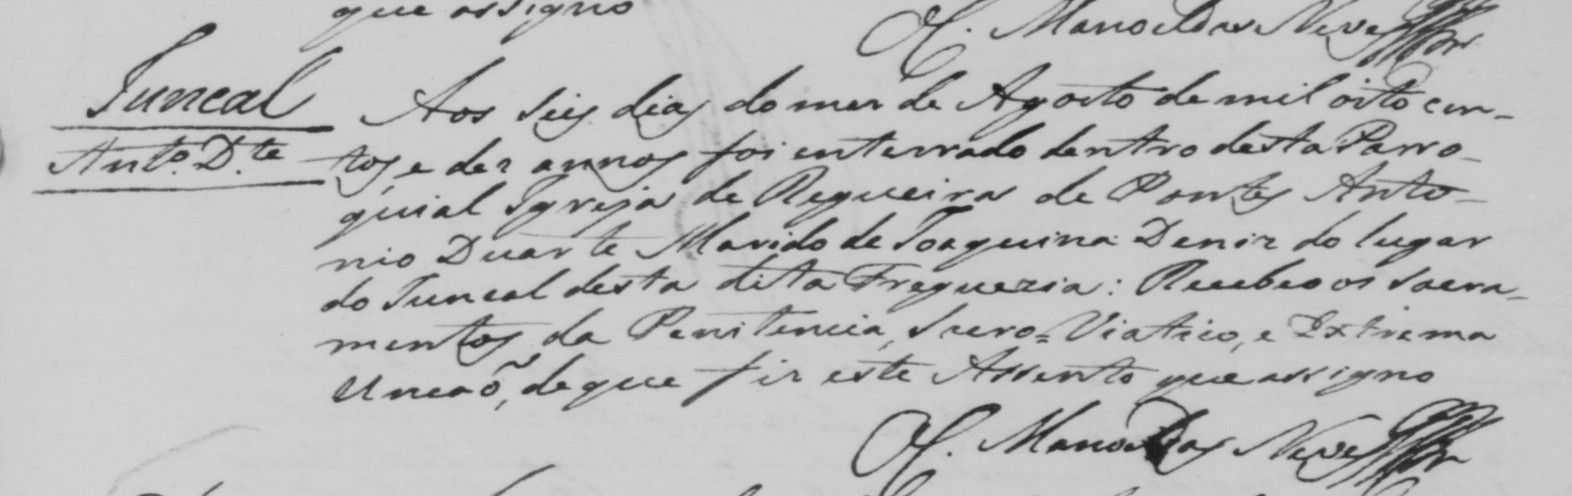 que assigno
O C. Manoel das Neves
Juncal
Anto. D.te
Aos seis dias do mes de Agosto de mil oito cen-
tos, e dez annos foi enterrado dentro desta Parro-
quial Igreja de Regueira de Pontes Anto-
nio Duarte Marido de Joaquina Deniz do lugar
do Juncal desta dita Freguezia: Recebeo os Sacra-
mentos da Penitencia, Sacro=Viatico, e Extrema
Uncaõ, de que fiz este Assento que assigno
O C. Manoel das Neves